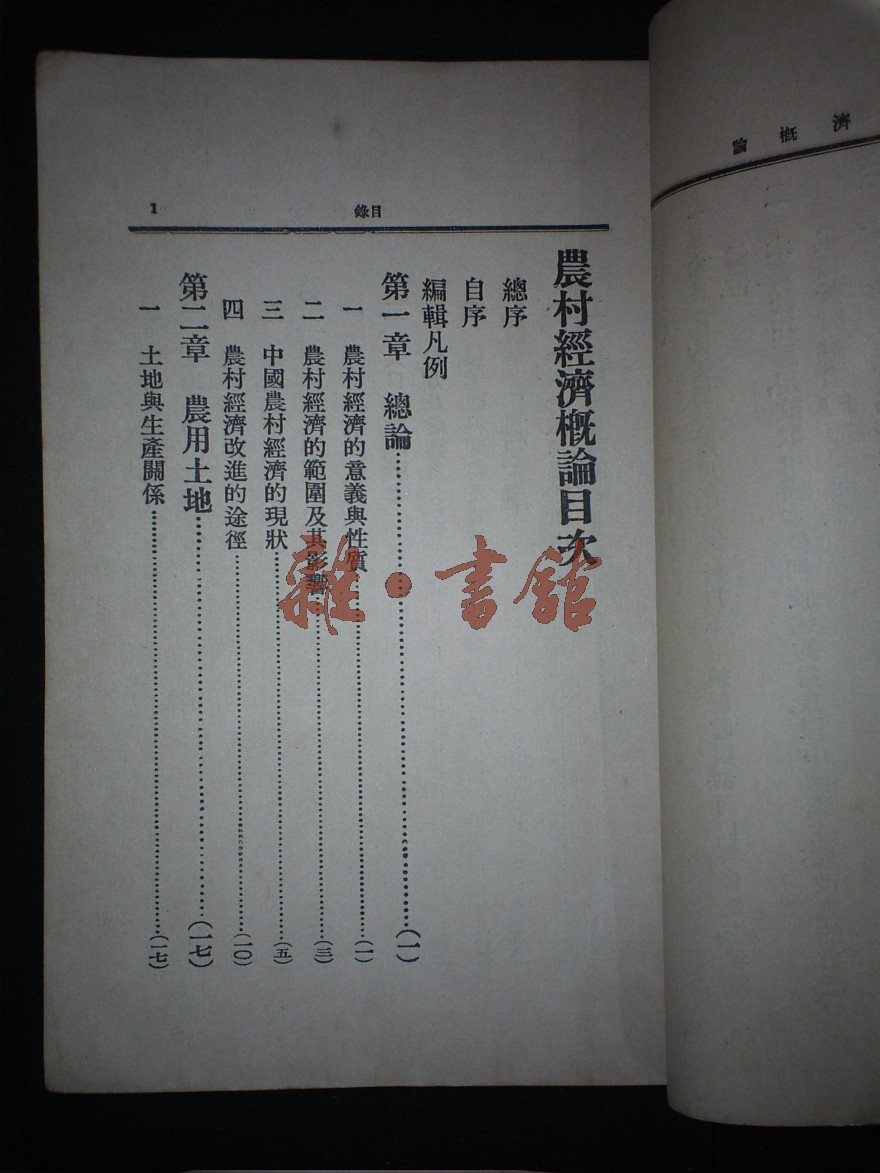 濟概論
錄目
1
農村經濟概論目次
總序
自序
編輯凡例
第一章 總論……(一)
一 農村經濟的意義與性質……(一)
二 農村經濟的範圍及其影響……(三)
三 中國農村經濟的現狀……(五)
四 農村經濟改進的途徑……(一〇)
第二章 農用土地……(一七)
一 土地與生產關係……(一七)
雜·書館